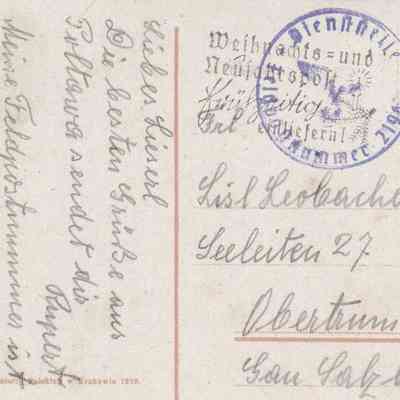 Liebes Lieserl
Die besten Grüße aus
Poltawa sendet dir
Rupert
Meine Feldpostnummer ist
Weihnachts=und
Neujahrspost
frühzeitig
einliefern!
Dienststelle
Frl
Lisl Leobache
Seeleiten 27
Obertrum
Gau Salz
w Krakowie 1939.